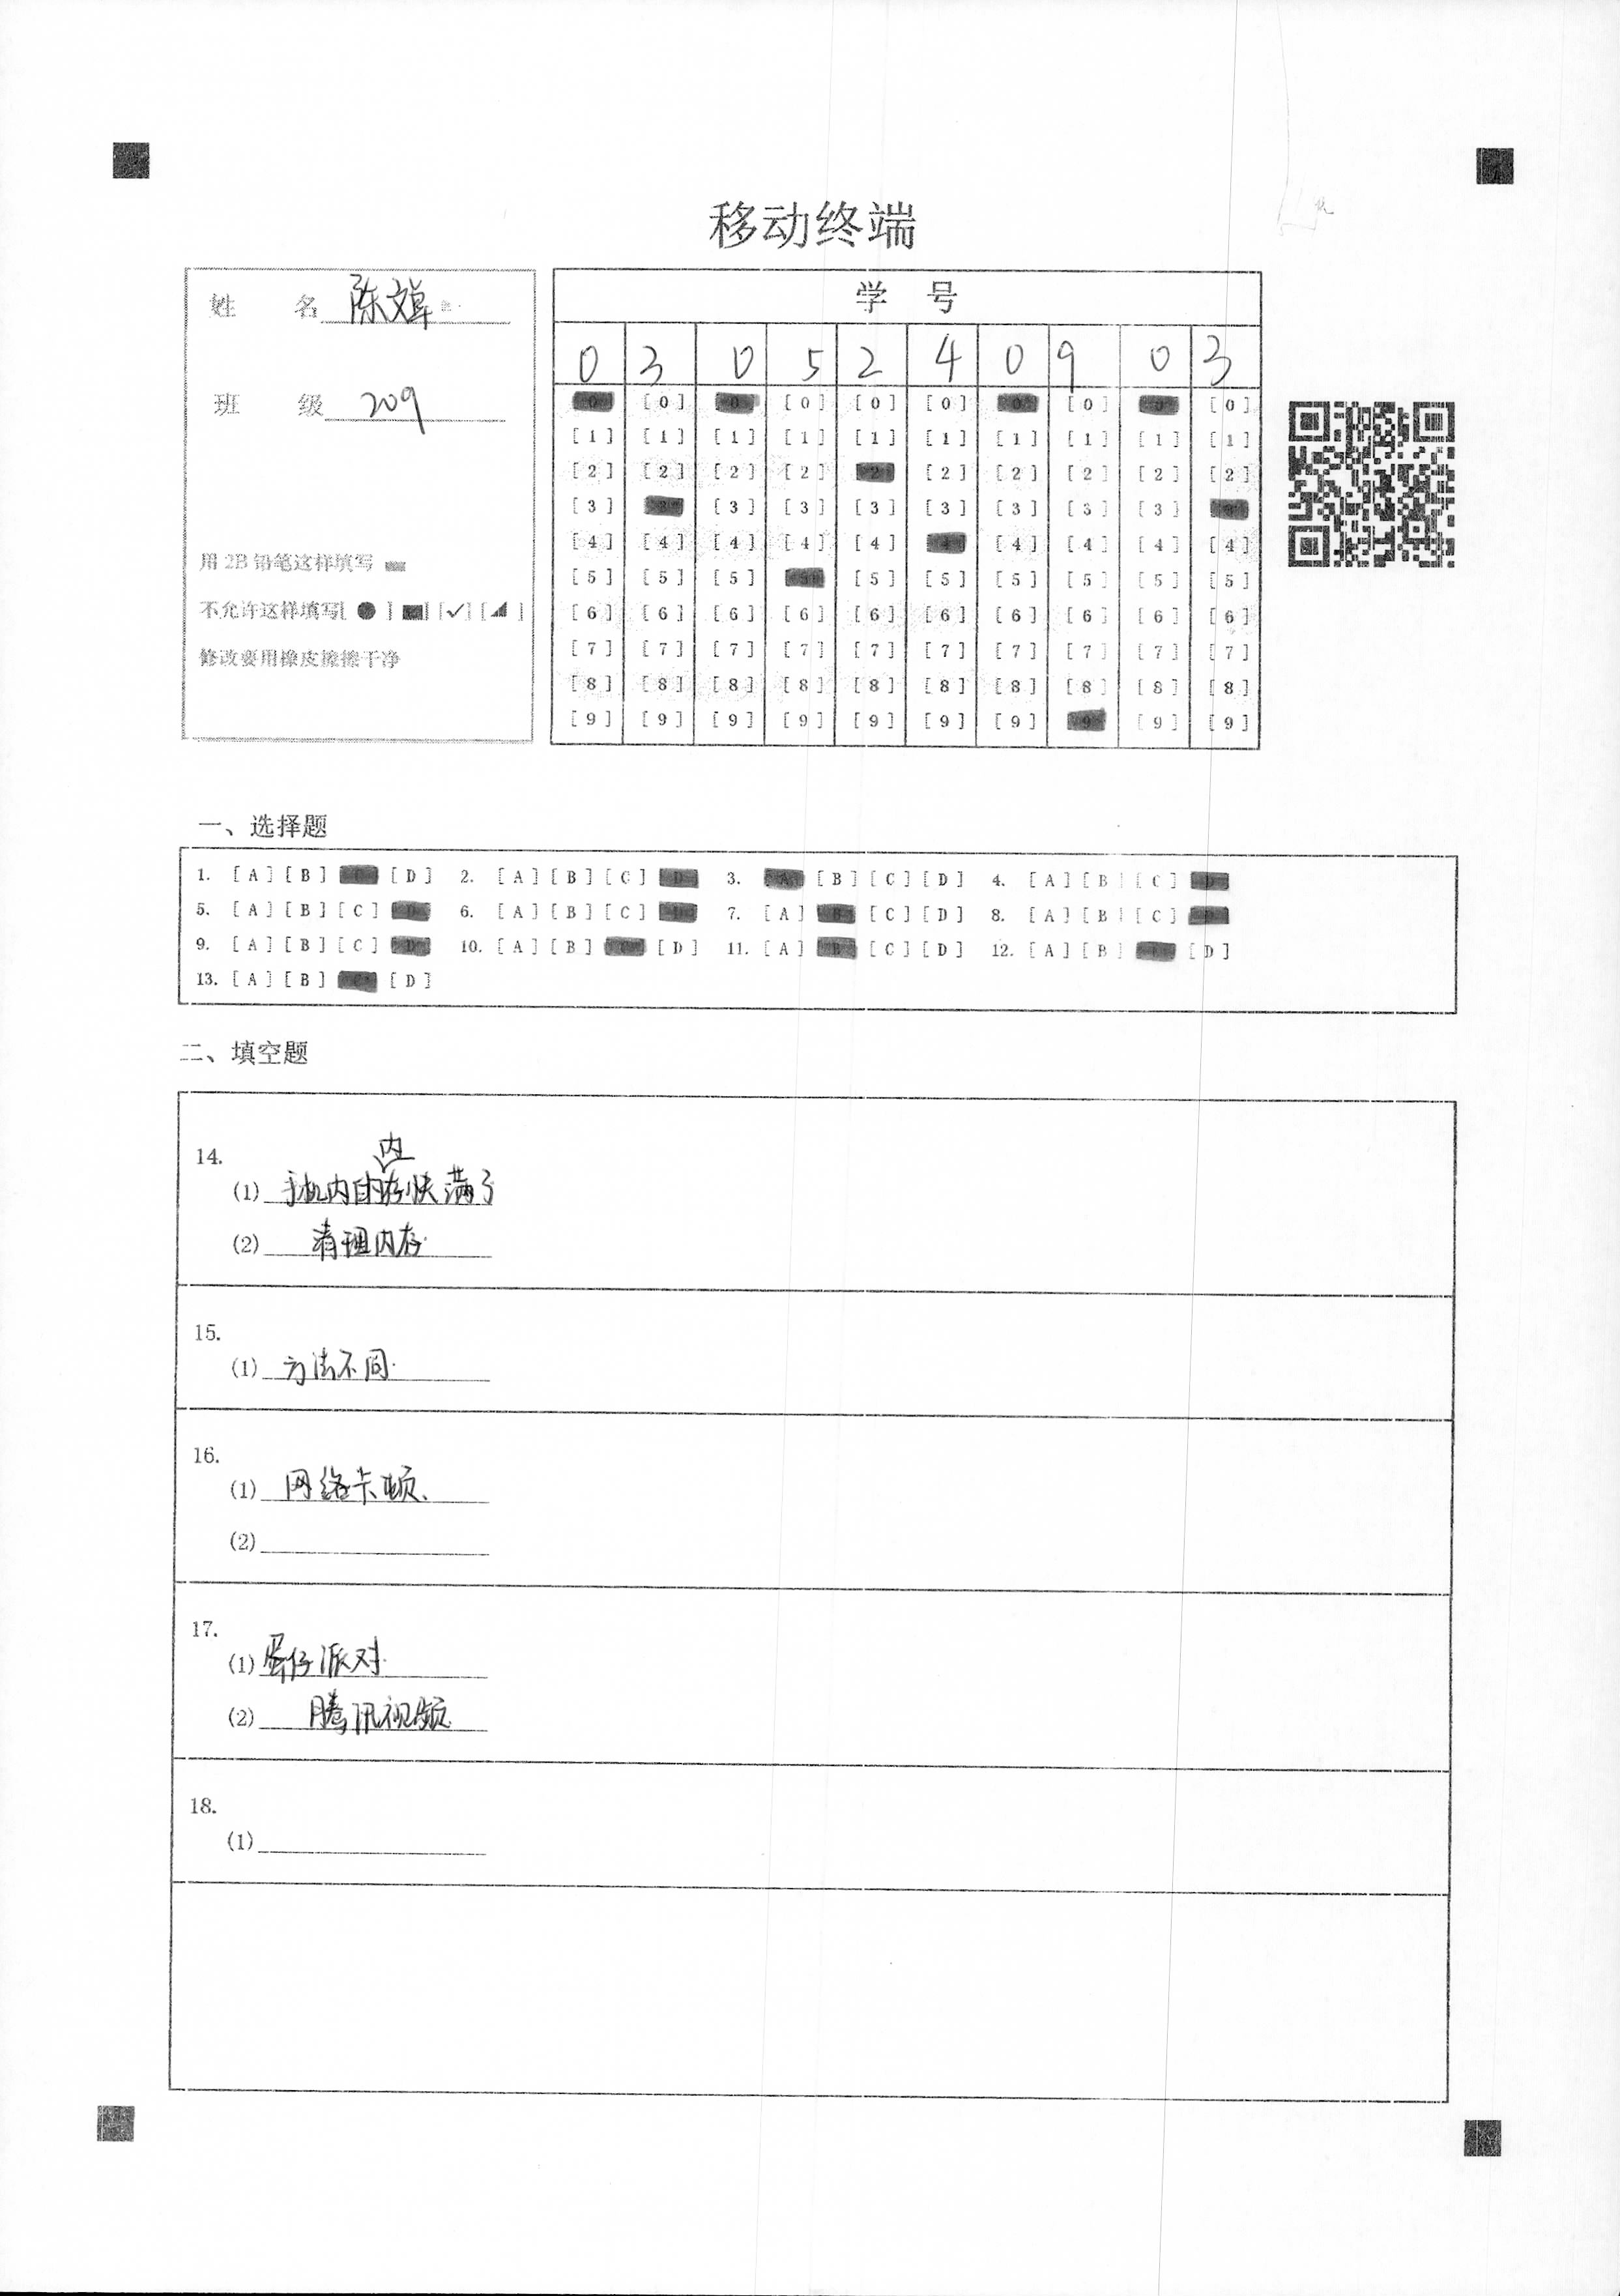 移动终端
姓 名 陈文卓
班 级 209
用 2B 铅笔这样填写
不允许这样填写[ ● ] [■] [✓] [◢ ]
修改要用橡皮擦擦干净
学 号
0 3 0 5 2 4 0 9 0 3
[0] [0] [0] [0] [0] [0] [0] [0] [0] [0]
[1] [1] [1] [1] [1] [1] [1] [1] [1] [1]
[2] [2] [2] [2] [2] [2] [2] [2] [2] [2]
[3] [3] [3] [3] [3] [3] [3] [3] [3] [3]
[4] [4] [4] [4] [4] [4] [4] [4] [4] [4]
[5] [5] [5] [5] [5] [5] [5] [5] [5] [5]
[6] [6] [6] [6] [6] [6] [6] [6] [6] [6]
[7] [7] [7] [7] [7] [7] [7] [7] [7] [7]
[8] [8] [8] [8] [8] [8] [8] [8] [8] [8]
[9] [9] [9] [9] [9] [9] [9] [9] [9] [9]
一、选择题
1. [A] [B] [C] [D] 2. [A] [B] [C] [D] 3. [A] [B] [C] [D] 4. [A] [B] [C] [D]
5. [A] [B] [C] [D] 6. [A] [B] [C] [D] 7. [A] [B] [C] [D] 8. [A] [B] [C] [D]
9. [A] [B] [C] [D] 10. [A] [B] [C] [D] 11. [A] [B] [C] [D] 12. [A] [B] [C] [D]
13. [A] [B] [C] [D]
二、填空题
14.
内
(1) 手机内的存快满了
(2) 清理内存
15.
(1) 方法不同
16.
(1) 网络卡顿
(2)
17.
(1) 蛋仔派对
(2) 腾讯视频
18.
(1)